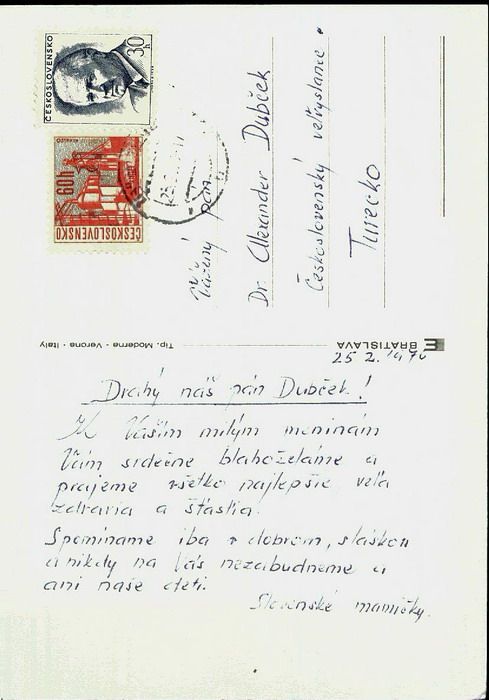 ČESKOSLOVENSKO
30h
60h
ČESKOSLOVENSKO
Vážený pán
Dr. Alexander Dubček
Československý veľvyslanec
Turecko
BRATISLAVA
Tip. Moderna - Verona - Italy
25 2. 1970
Drahý náš pán Dubček!
K Vašim milým meninám
Vám srdečne blahoželáme a
prajeme všetko najlepšie veľa
zdravia a šťastia.
Spomíname iba v dobrom, s láskou
a nikdy na Vás nezabudneme a
ani naše deti.
Slovenské mamičky.